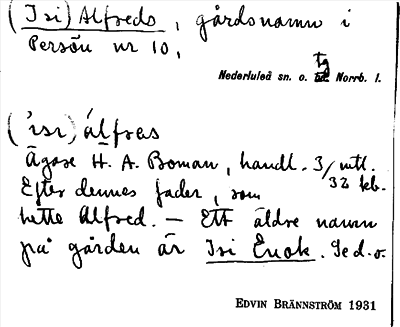 (Isi) Alfreds, gårdsnamn i
Persön nr 10,
Nederluleå sn. o. tg Norrb. l.
('ısı) álfres
Ägare H. A. Boman, handl. 3/32 mtl.
Efter dennes fader, som
hette Alfred. — Ett äldre namn
på gården är Isi Enok. Se d. o.
EDVIN BRÄNNSTRÖM 1931